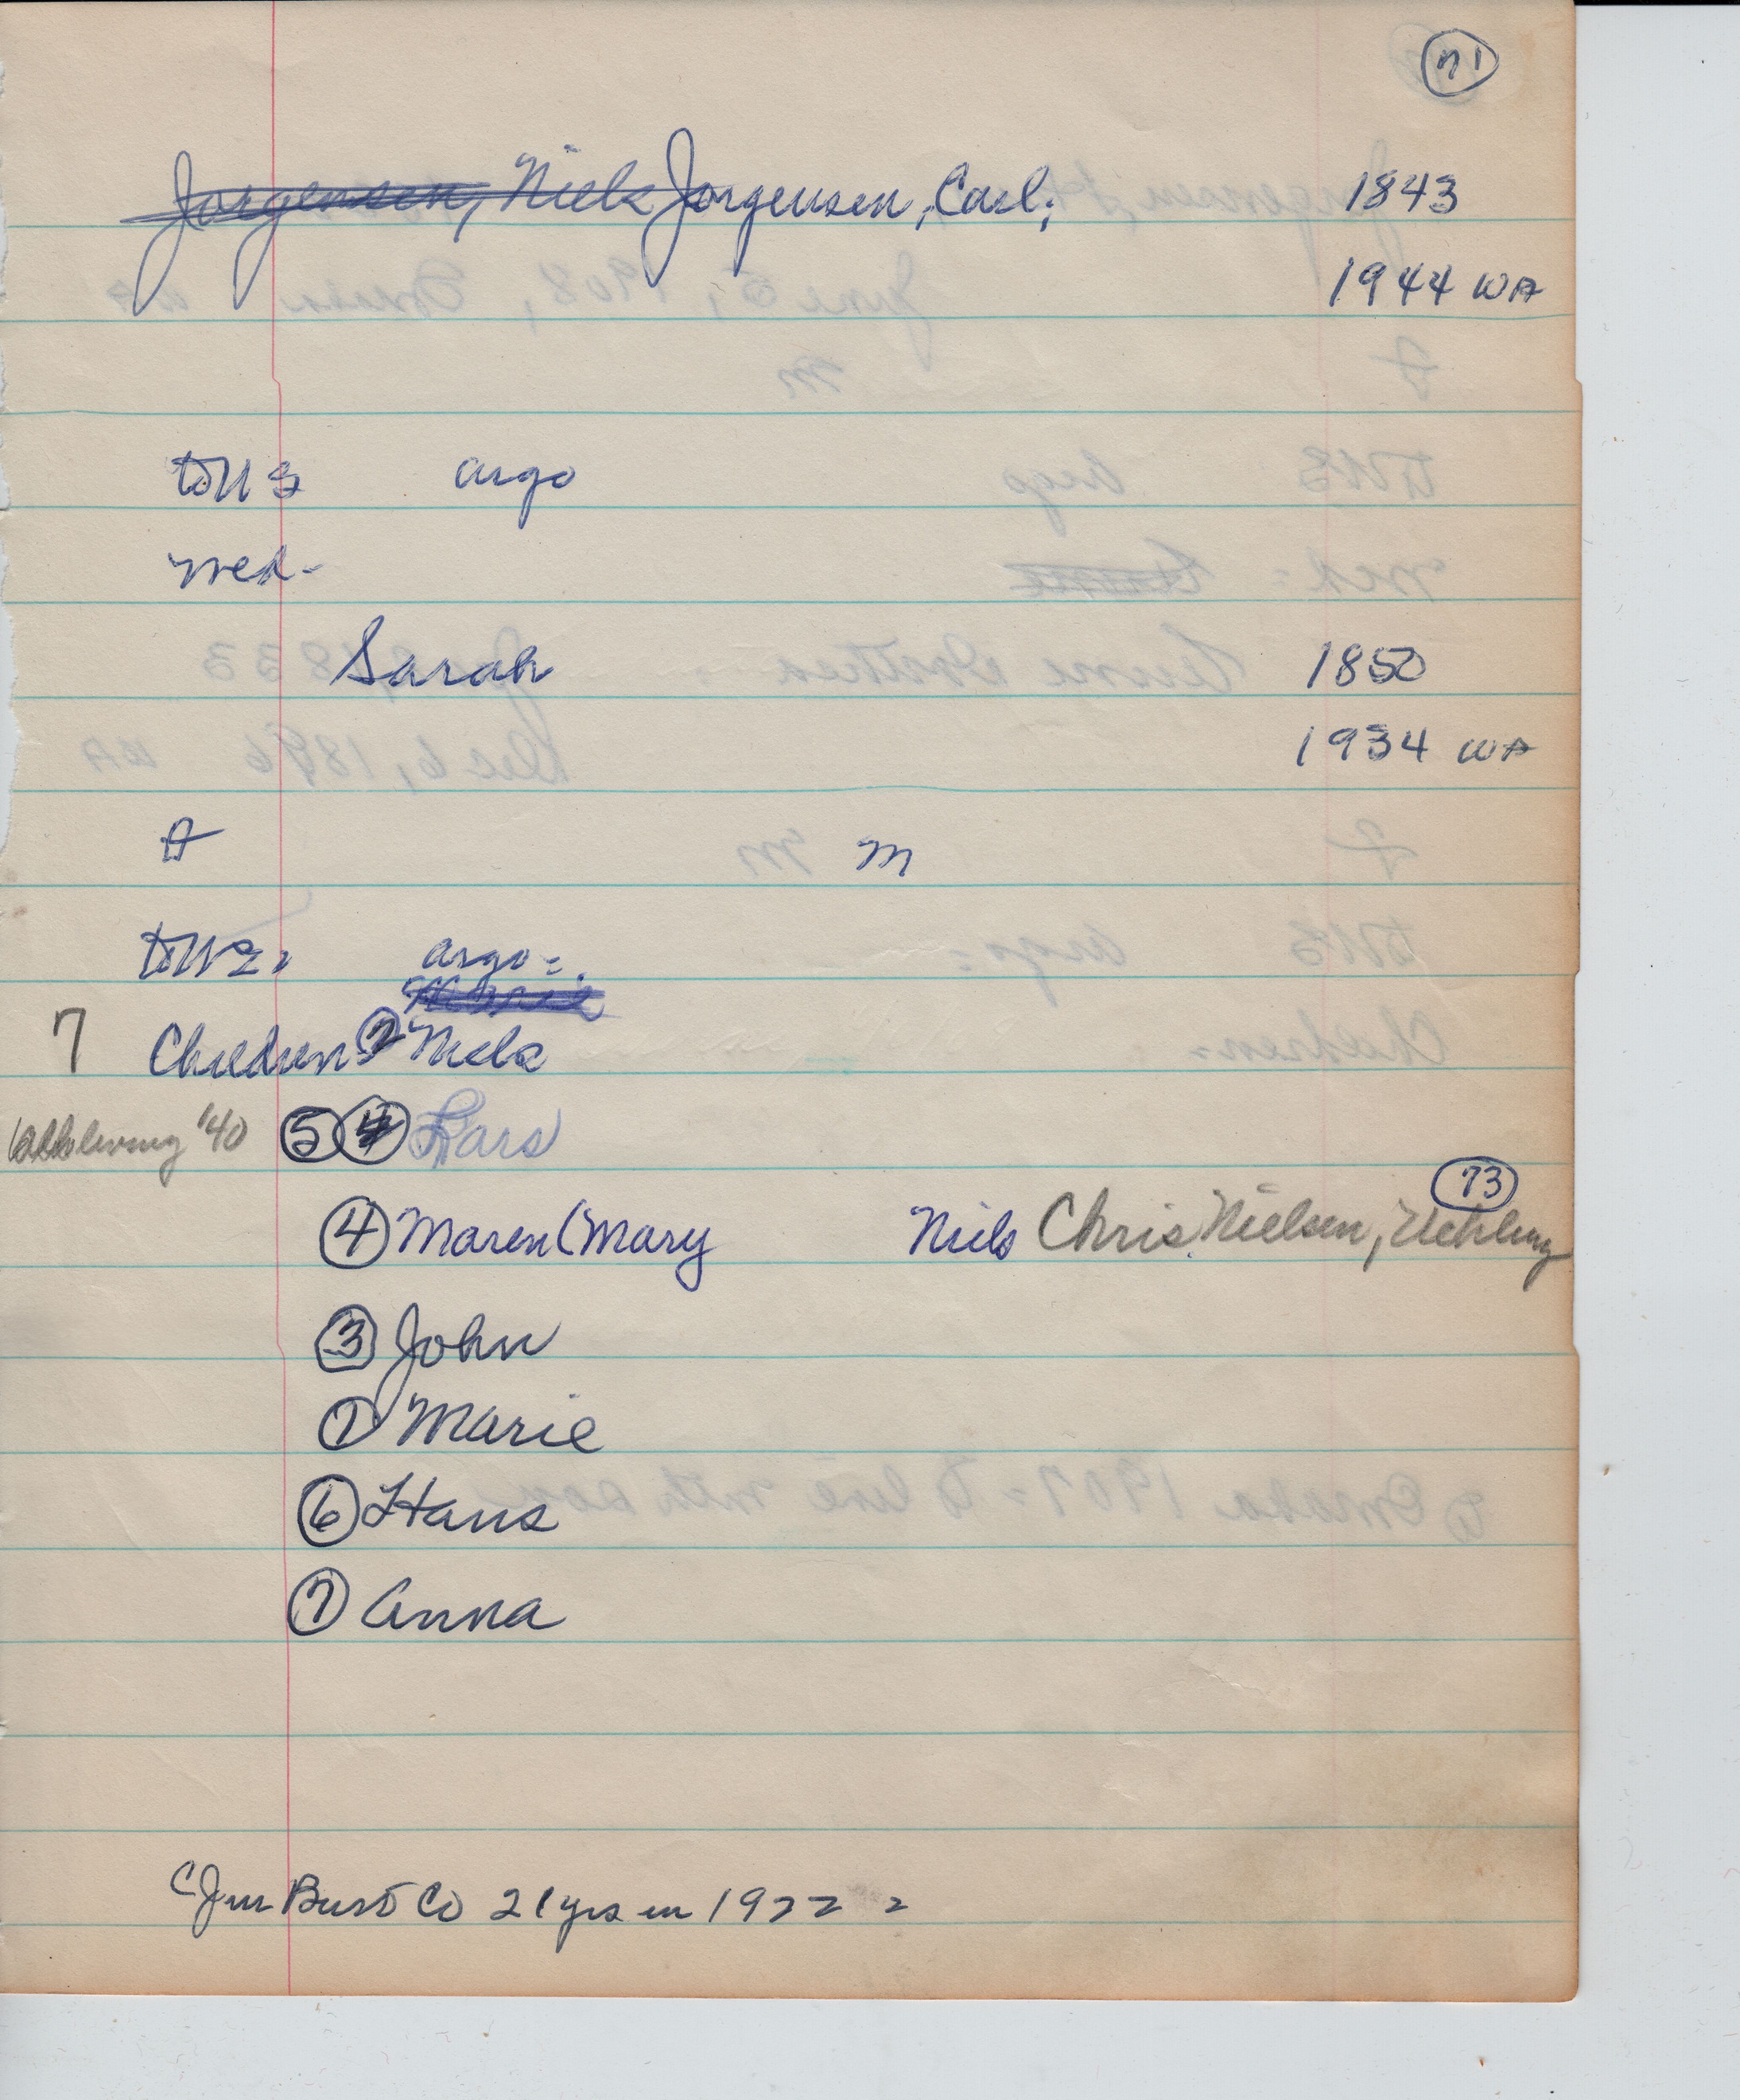 71
Jorgensen, Niels Jorgensen, Carl,
1843
1944 WA
to US argo
med-
Sarah 1850
1934 WA
F m
to US argo=
Marie
7 Children 2 Niels
living '40 5 4 Lars
73
4 Maren (Mary Niels Chris Nielsen, Uehling
3 John
1 Marie
6 Hans
7 Anna
in Burt Co 21 yrs in 1922